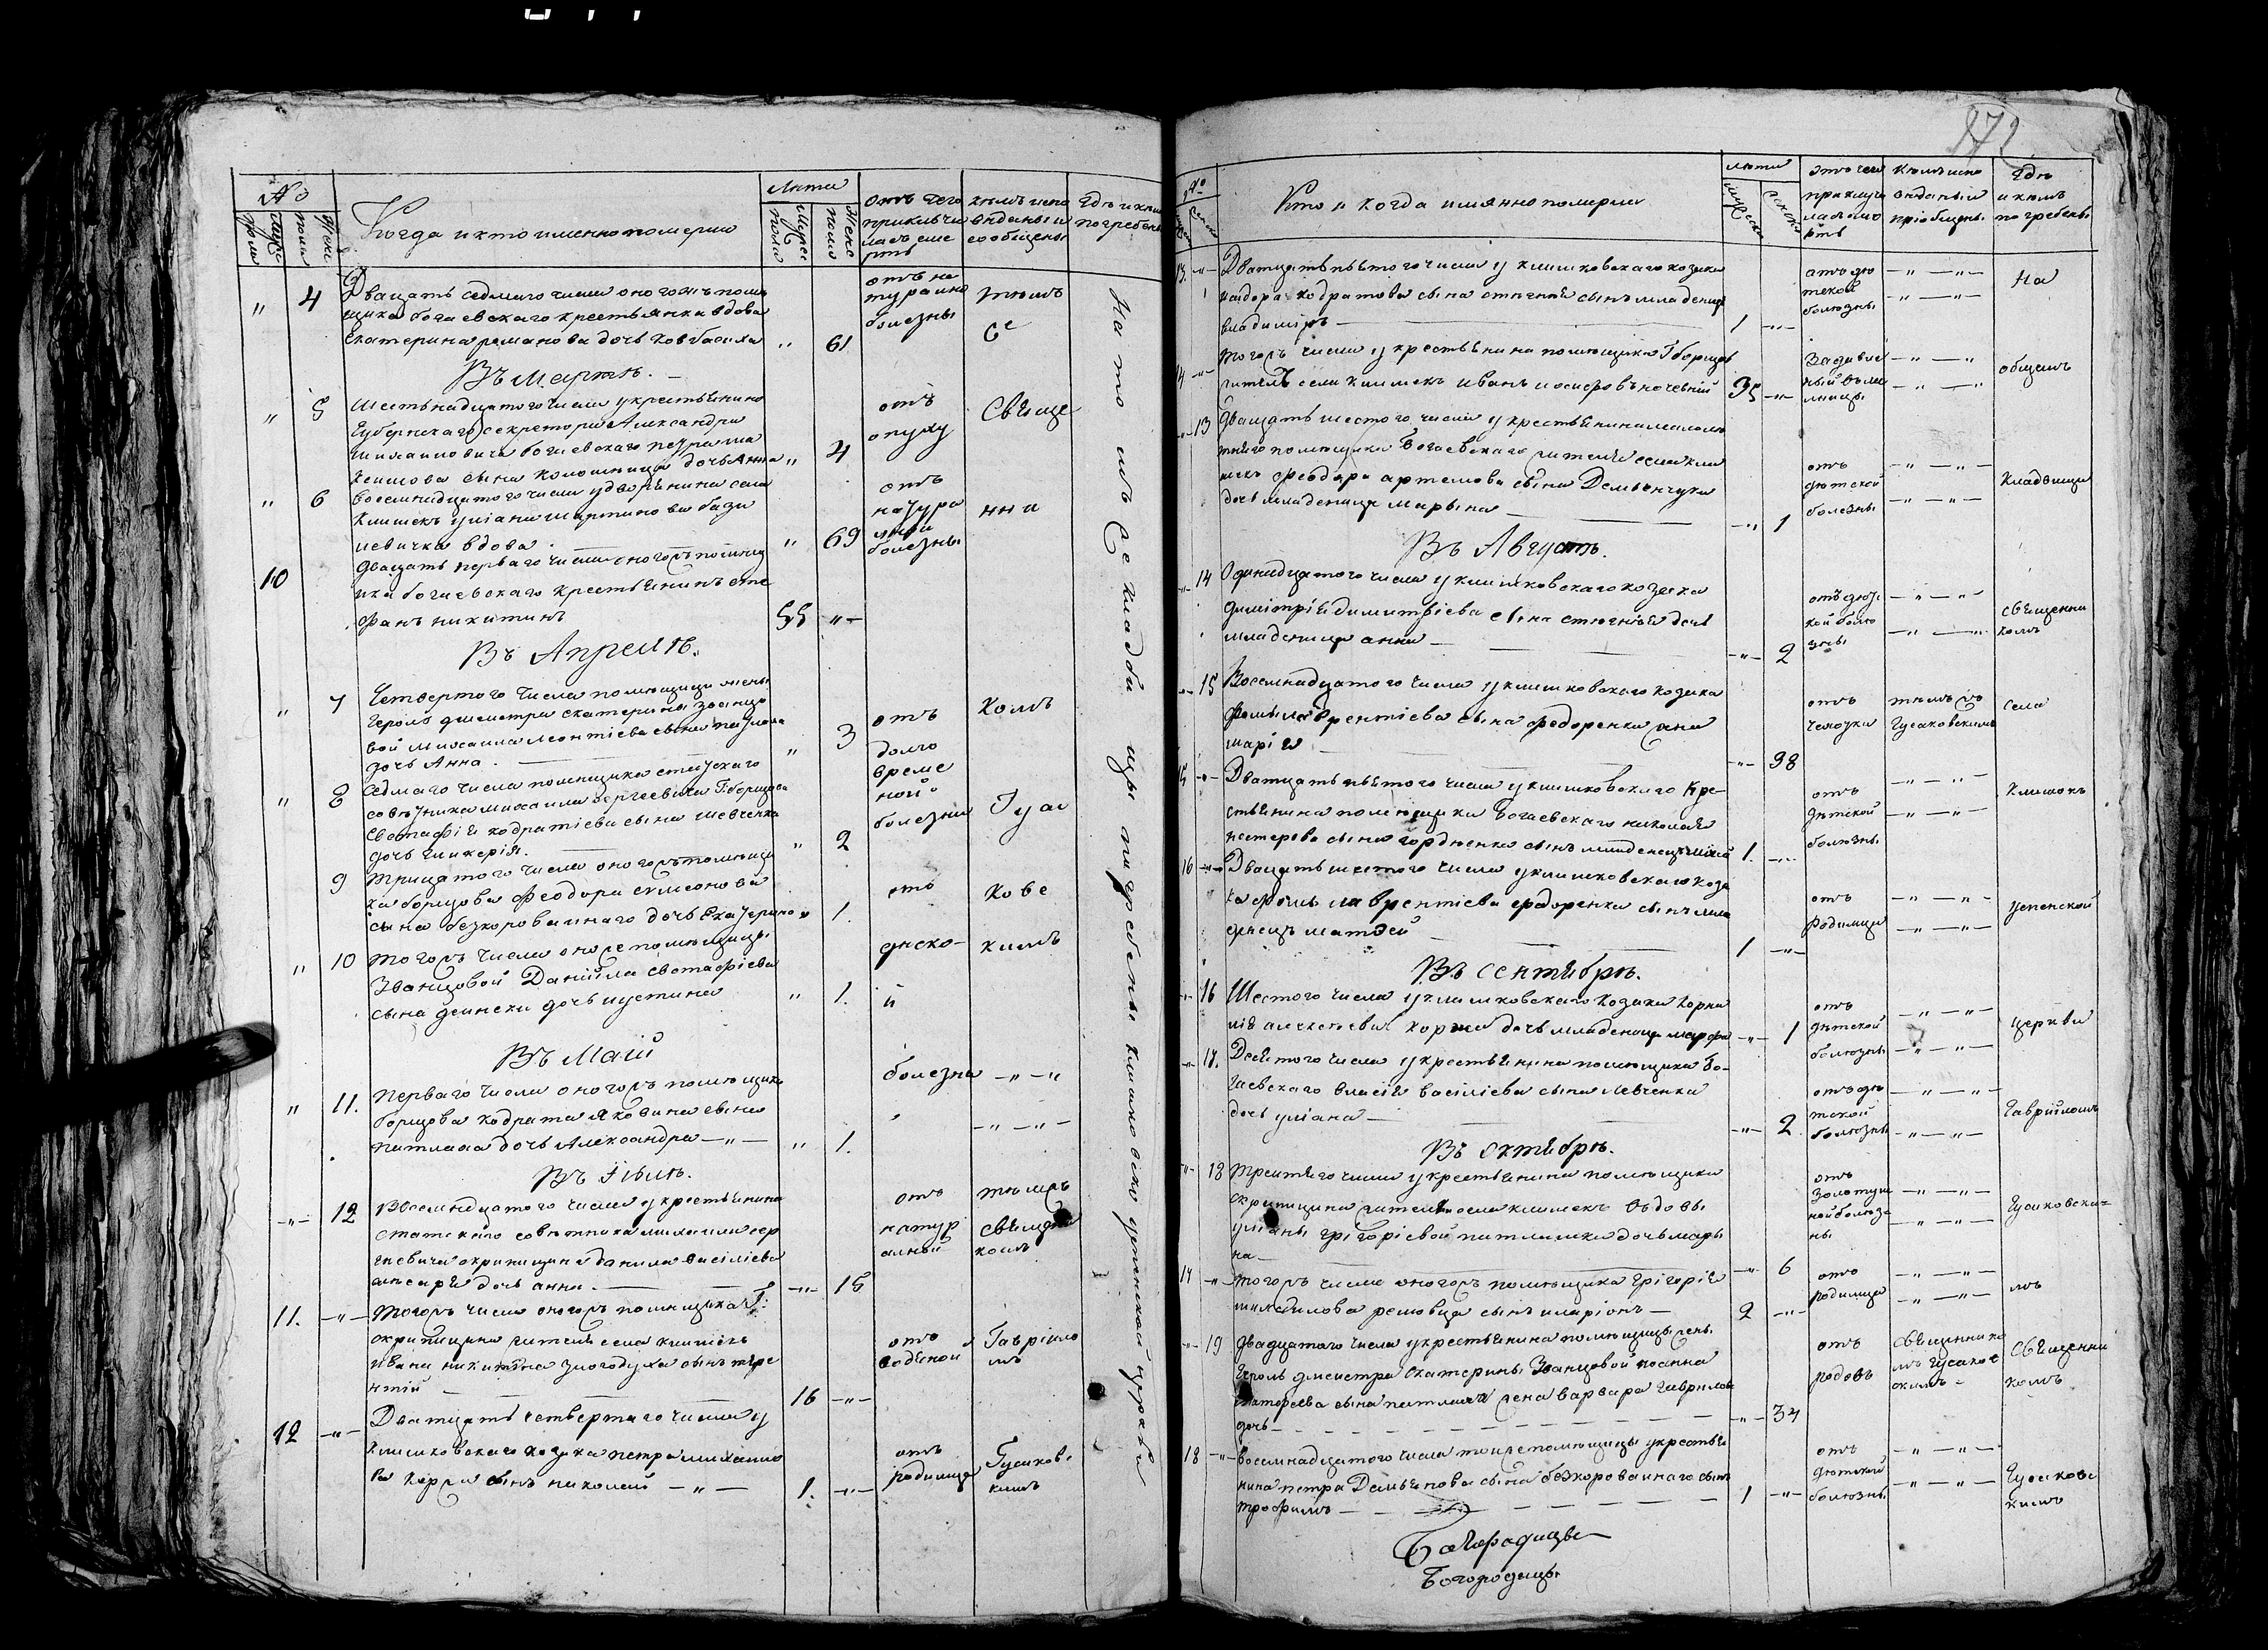 172
№
Когда и кто именно померли
Лета
Отъ чего приключилась смерть
кемъ исповеданы и сообщены
Где и кем погребены
" 4
Двацать седмаго числа оногожъ поме
щика богаевскаго крестьянка вдова
Екатерина романова дочь ковбасиха " 61
отъ на
турално
болезны
темъ
Въ Марте. —
" 5
Шестьнадцатого числа у крестьянина
Губернскаго секретора Александра
Михаиловича богаевскаго
сына дочь Анна " 4
отъ
опуху
Свеще
" 6
восемнадцатого числа у дворенина села
Клишекъ уліана мартинова
вдова " 69
отъ
натура
лной
болезны
нни
10
двацать перваго числа оногожъ помещи
ика богаевскаго крестьенинъ сте
фанъ никитинъ 55 "
Въ Апреле.
" 7
Четвертого числа помещици жены
Екатерины званцо
вой михаила леонтіева сына
дочь Анна. " 3
отъ
долго
време
ной
болезны
комъ
" 8
Седмаго числа помещика статскаго
советника михаила сергеевича
Евстафія кодратіева сына шевченка
дочь гликерія. " 2
Гуса
9
Трицатого числа оногожъ помещи
ка борщова феодора симеонова
сына безкороваинаго дочь Екатерина " 1.
отъ
кове
" 10
тогожъ числа оноеже помещицы
Званцовой Даніила евстафіева
сына дочь иустина " 1.
днско-
й
кимъ
Въ Маіи
" 11.
перваго числа оногожъ помещика
борщова кодрата яковина сына
патлаха дочь Александра — " — " 1.
болезна
Въ Іюле.
" 12
Восемнадцатого числа у крестьенина
статскаго советника михаила сер
гиевича скрипицина данила василіева
дочь анна. — " 15
отъ
натур
алной
темже
свещен
комъ
11. "
Тогожъ числа оногожъ помещика Г:
скрипицина жителя села клишекъ
Ивана никитина злогодуха сынъ тере
нтій — 16 "
отъ
водяной
Гавріило
мъ
12 "
Двадцать четвертаго числа у
клишковскаго козака петра михаило
ва коржа сынъ николай — " — 1. "
отъ
родимца
Гусаков-
кимъ
На томъ же кладбищы погребены клишковской успенской церкви
№
Кто и когда имянно померли
лета
отъ чего приключилась смерть
кемъ исповеданы и пріобщены
Где и кемъ погребены
13. "
Двадцать пьятого числа у клишковскаго козака
кодратова сына стягнея сынъ младенецъ
владиміръ — 1 "
отъ де
тской
болезны
На
14 "
тогожъ числа у крестьенина помещика Г борщова
жителя села клишекъ Иванъ иосифовъ ночевній 35 "
Задавле
ный въ ме
лницы
общемъ
" 13
двацать шестого числа у крестьенина малоле
тнего помещика Богаевскаго жителя села кли
шекъ Феодора артемова сына Демьенчука
дочь младеница марына — " 1
отъ
детской
болезны
кладбищи
Въ Августе.
" 14
Одинадцатого числа у клишковскаго козака
димітрія димитріева сына стягнея дочь
младеница анна — " 2
отъ детс
кой боле
зны
свещенни
комъ
" 15
Восемнадцатого числа у клишковского козака
фомы лаврентіева сына федоренка жена
маріа — " 38
отъ
чахотки
темъ же
Гусаковскимъ
села
15 "
Дватцать пьятого числа у клишковскаго кре-
стьенина помещика Богаевскаго николая
нестерова сына гордіенка сынъ младенецъ 1. "
отъ
детской
болезны
Клишокъ
16 "
Двацать шестого числа у клишковскаго коза
ка фомы лаврентіева федоренка сынъ мла
денецъ матвей — 1 "
отъ
родимца
успенской
Въ сентябре.
" 16
Шестого числа у клишковскаго козака корни
лія алексеева коржа дочь младеница марфа " 1
отъ
детской
болезны
церкви
" 17.
Десятого числа у крестьенина помещика Бо-
гаевскаго власія васіліева сына левченка
дочь уліана — " 2
отъ де
тской
болезны
Гавріиломъ
Въ октябре.
" 18
третяго числа у крестьенина помещика
скрипицина жителя села клишекъ вдовы
уліаны григоріевой патлашка дочь мары
на — " 6
отъ
золотуш
ной болез
ны
Гусаковски-
17 "
тогожъ числа оногожъ помещика григорія
сынъ иларіонъ — 2 "
отъ
родимца
мъ
" 19
двадцатого числа у крестьенина помещицы жены
Екатерины Званцовой иоанна
сына патлаха жена варвара гаврилова
дочь — " 34
отъ
родовъ
свещеннико
мъ гусаков
скимъ
Свещенни
комъ
18 "
восемнадцатого числа тоеже помещицы у крестье
нина петра Демьенова сына безкороваинаго сынъ
трофимъ — 1 "
отъ
детской
болезны
Гусаковс
кимъ
Богородицы
Богородицы